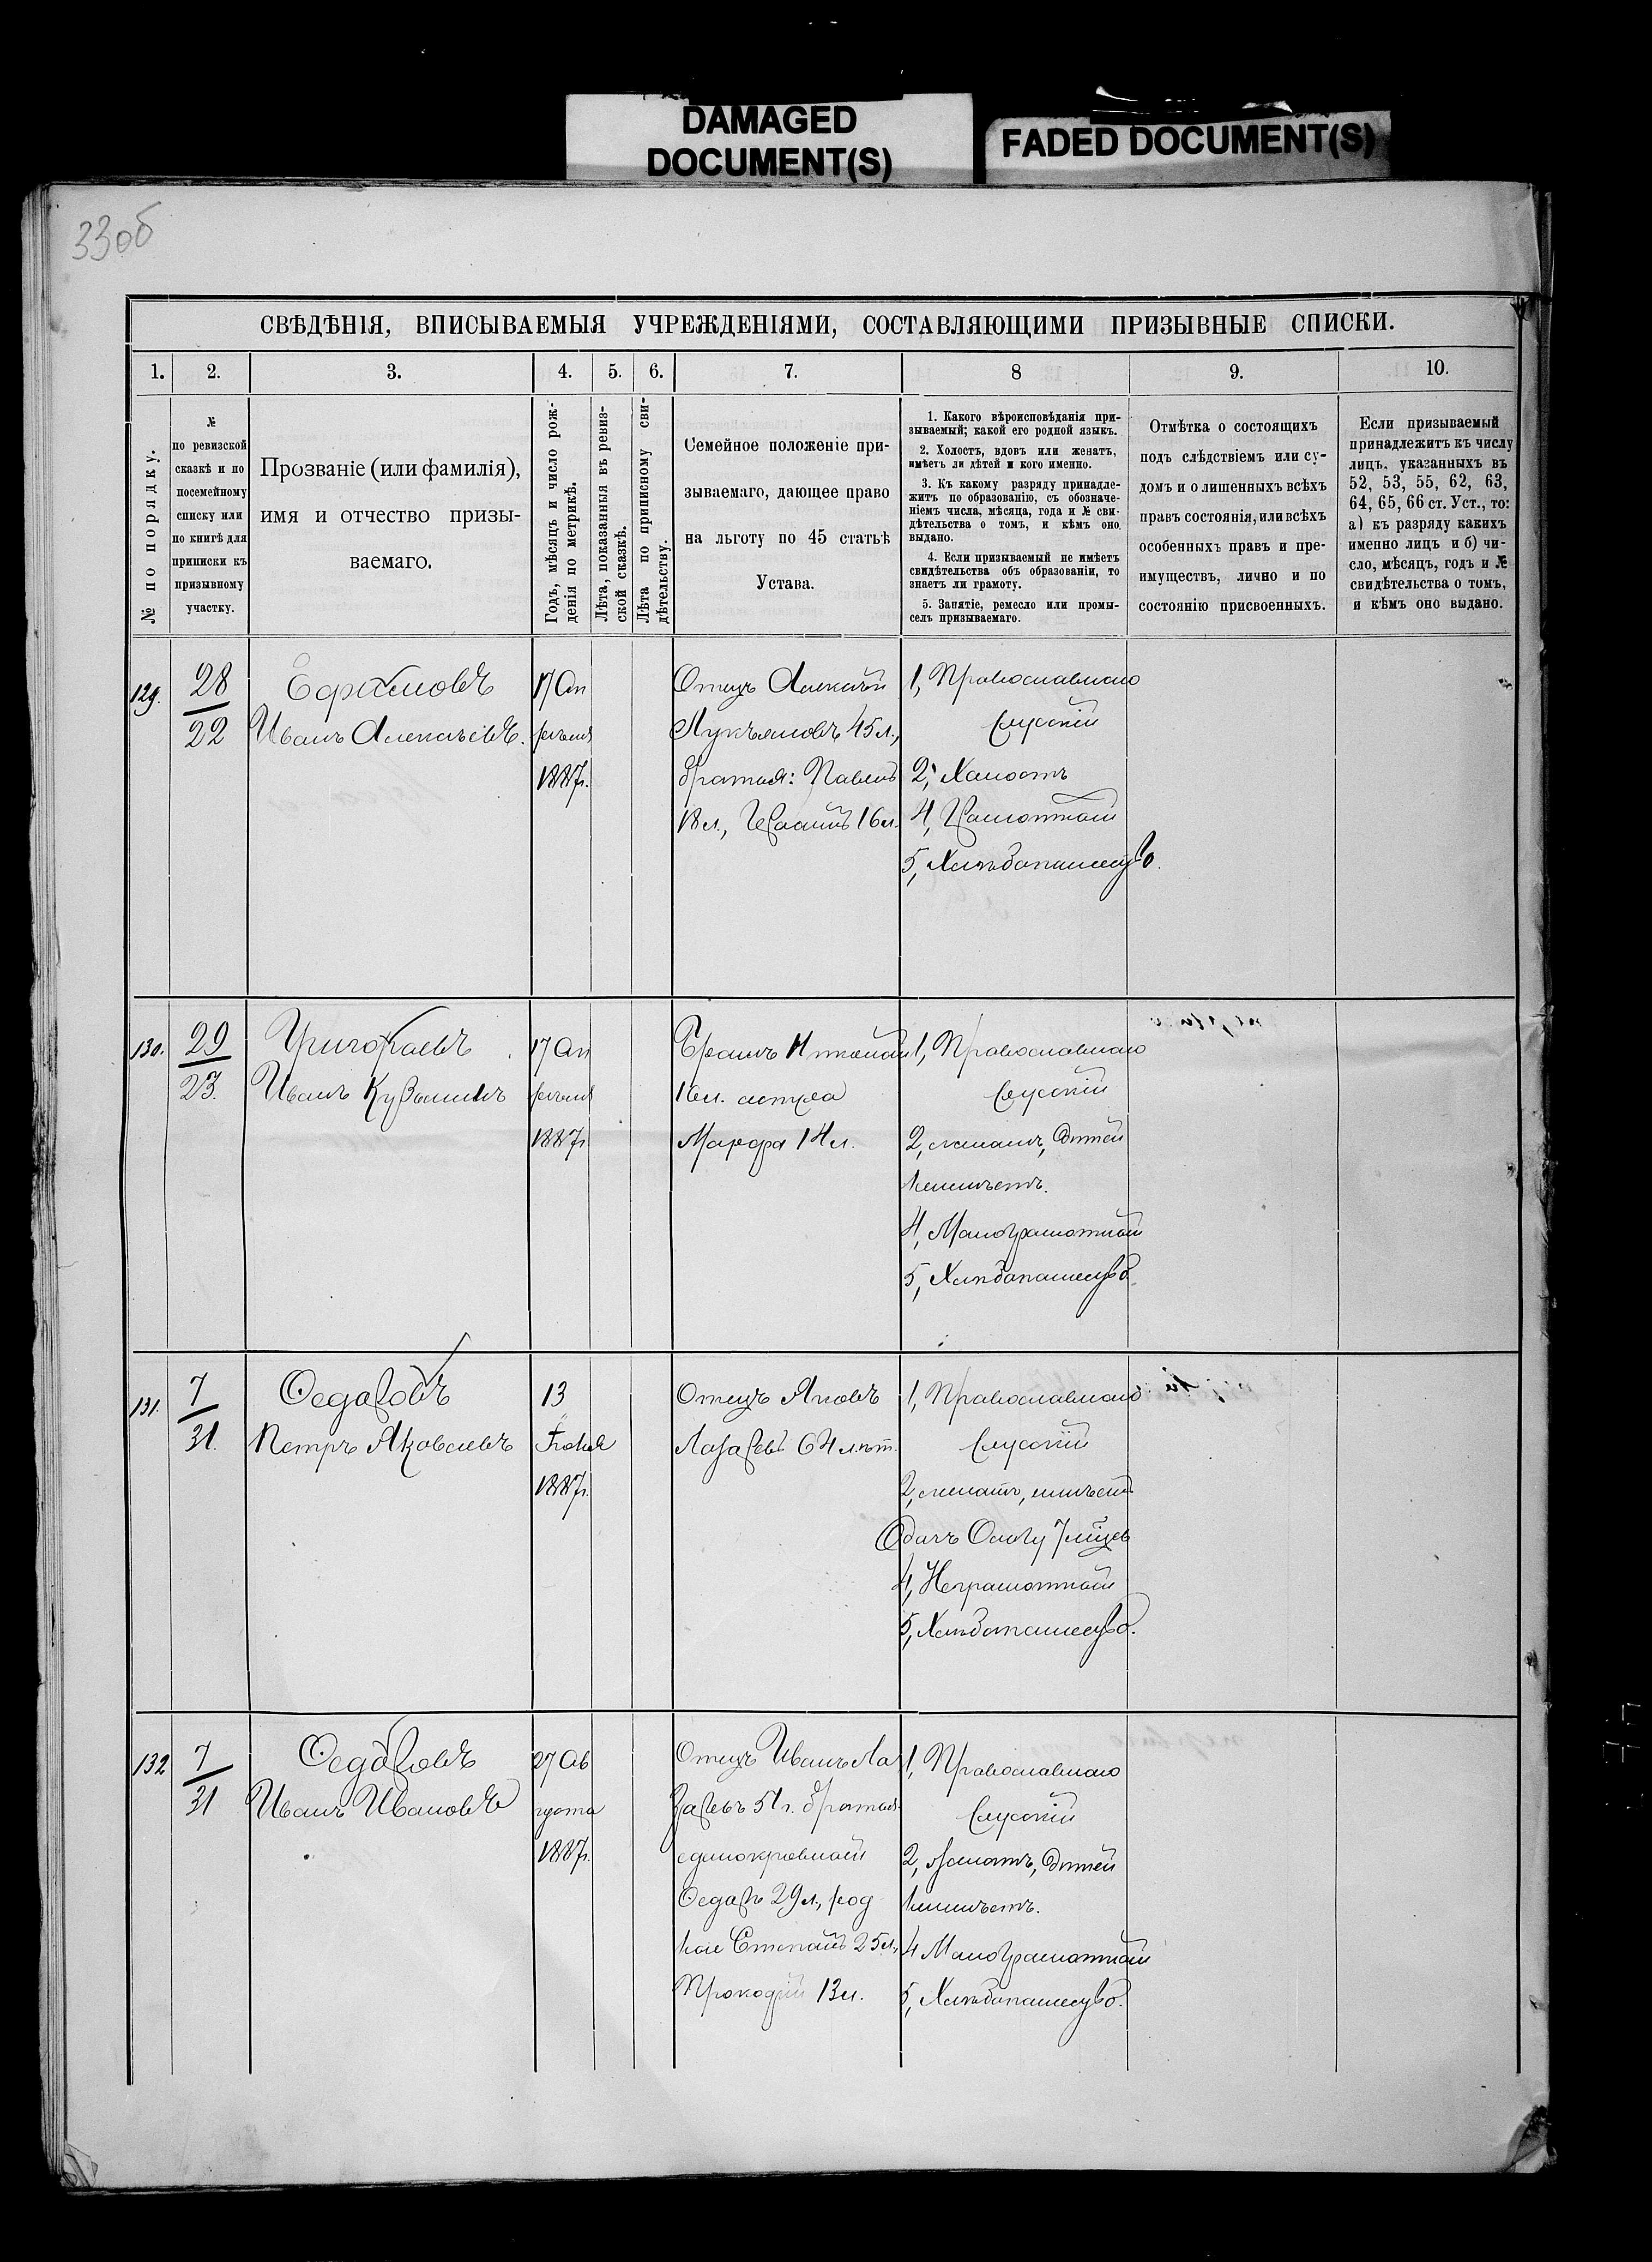 DAMAGED
DOCUMENT(S)
FADED DOCUMENT(S)
33об
СВѢДѢНІЯ, ВПИСЫВАЕМЫЯ УЧРЕЖДЕНІЯМИ, СОСТАВЛЯЮЩИМИ ПРИЗЫВНЫЕ СПИСКИ.
1. 2. 3. 4. 5. 6. 7. 8 9. 10.
№ по порядку.
№
по ревизской
сказкѣ и по
посемейному
списку или
по книгѣ для
приписки къ
призывному
участку.
Прозваніе (или фамилія),
имя и отчество призы-
ваемаго.
Годъ, мѣсяцъ и число рож-
денія по метрикѣ.
Лѣта, показанныя въ ревиз-
ской сказкѣ.
Лѣта по приписному сви-
дѣтельству.
Семейное положеніе при-
зываемаго, дающее право
на льготу по 45 статьѣ
Устава.
1. Какого вѣроисповѣданія при-
зываемый; какой его родной языкъ.
2. Холостъ, вдовъ или женатъ,
имѣетъ ли дѣтей и кого именно.
3. Къ какому разряду принадле-
житъ по образованію, съ обозначе-
ніемъ числа, мѣсяца, года и № сви-
дѣтельства о томъ, и кѣмъ оно
выдано.
4. Если призываемый не имѣетъ
свидѣтельства объ образованіи, то
знаетъ ли грамоту.
5. Занятіе, ремесло или промы-
селъ призываемаго.
Отмѣтка о состоящихъ
подъ слѣдствіемъ или су-
домъ и о лишенныхъ всѣхъ
правъ состоянія, или всѣхъ
особенныхъ правъ и пре-
имуществъ, лично и по
состоянію присвоенныхъ.
Если призываемый
принадлежитъ къ числу
лицъ, указанныхъ въ
52, 53, 55, 62, 63,
64, 65, 66 ст. Уст., то:
а) къ разряду какихъ
именно лицъ и б) чи-
сло, мѣсяцъ, годъ и №
свидѣтельства о томъ,
и кѣмъ оно выдано.
129.
28
22
Ефимовъ
Иванъ Алексѣевъ.
17 Ап
рѣля
1887г.
Отецъ Алексѣй
Лукьяновъ 45л.,
братья: Павелъ
18л., 16л.
1, Православнаго
Русскій
2, Холостъ
4, Грамотный
5, Хлѣбопашество.
130.
29
23.
Григорьевъ
Иванъ Кузьминъ
17 Ап
рѣля
1887г
Братъ Николай
16л. сестра
Марфа 14л.
1, Православнаго
Русскій
2, женатъ, дѣтей
неимѣетъ.
4, Малограмотный
5, Хлѣбопашество.
131.
7
31.
Федоровъ
Петръ Яковлевъ
13
Іюня
1887г.
Отецъ Яковъ
Лазаревъ 64 лѣт.
1, Православнаго
Русскій
2, женатъ, имѣетъ
Дочь Ольгу 7 мѣсцев
4, Неграмотный
5, Хлѣбопашество.
132
7
31
Федоровъ
Иванъ Ивановъ
27 Ав
густа
1887г.
Отецъ Иванъ Ла
заревъ 51г. братья
единокровный
Федоръ 29л., род
ные Степанъ 25л.,
Прокофій 13л.
1, Православнаго
Русскій
2, Женатъ, дѣтей
неимѣетъ.
4 Малограмотный
5, Хлѣбопашество.